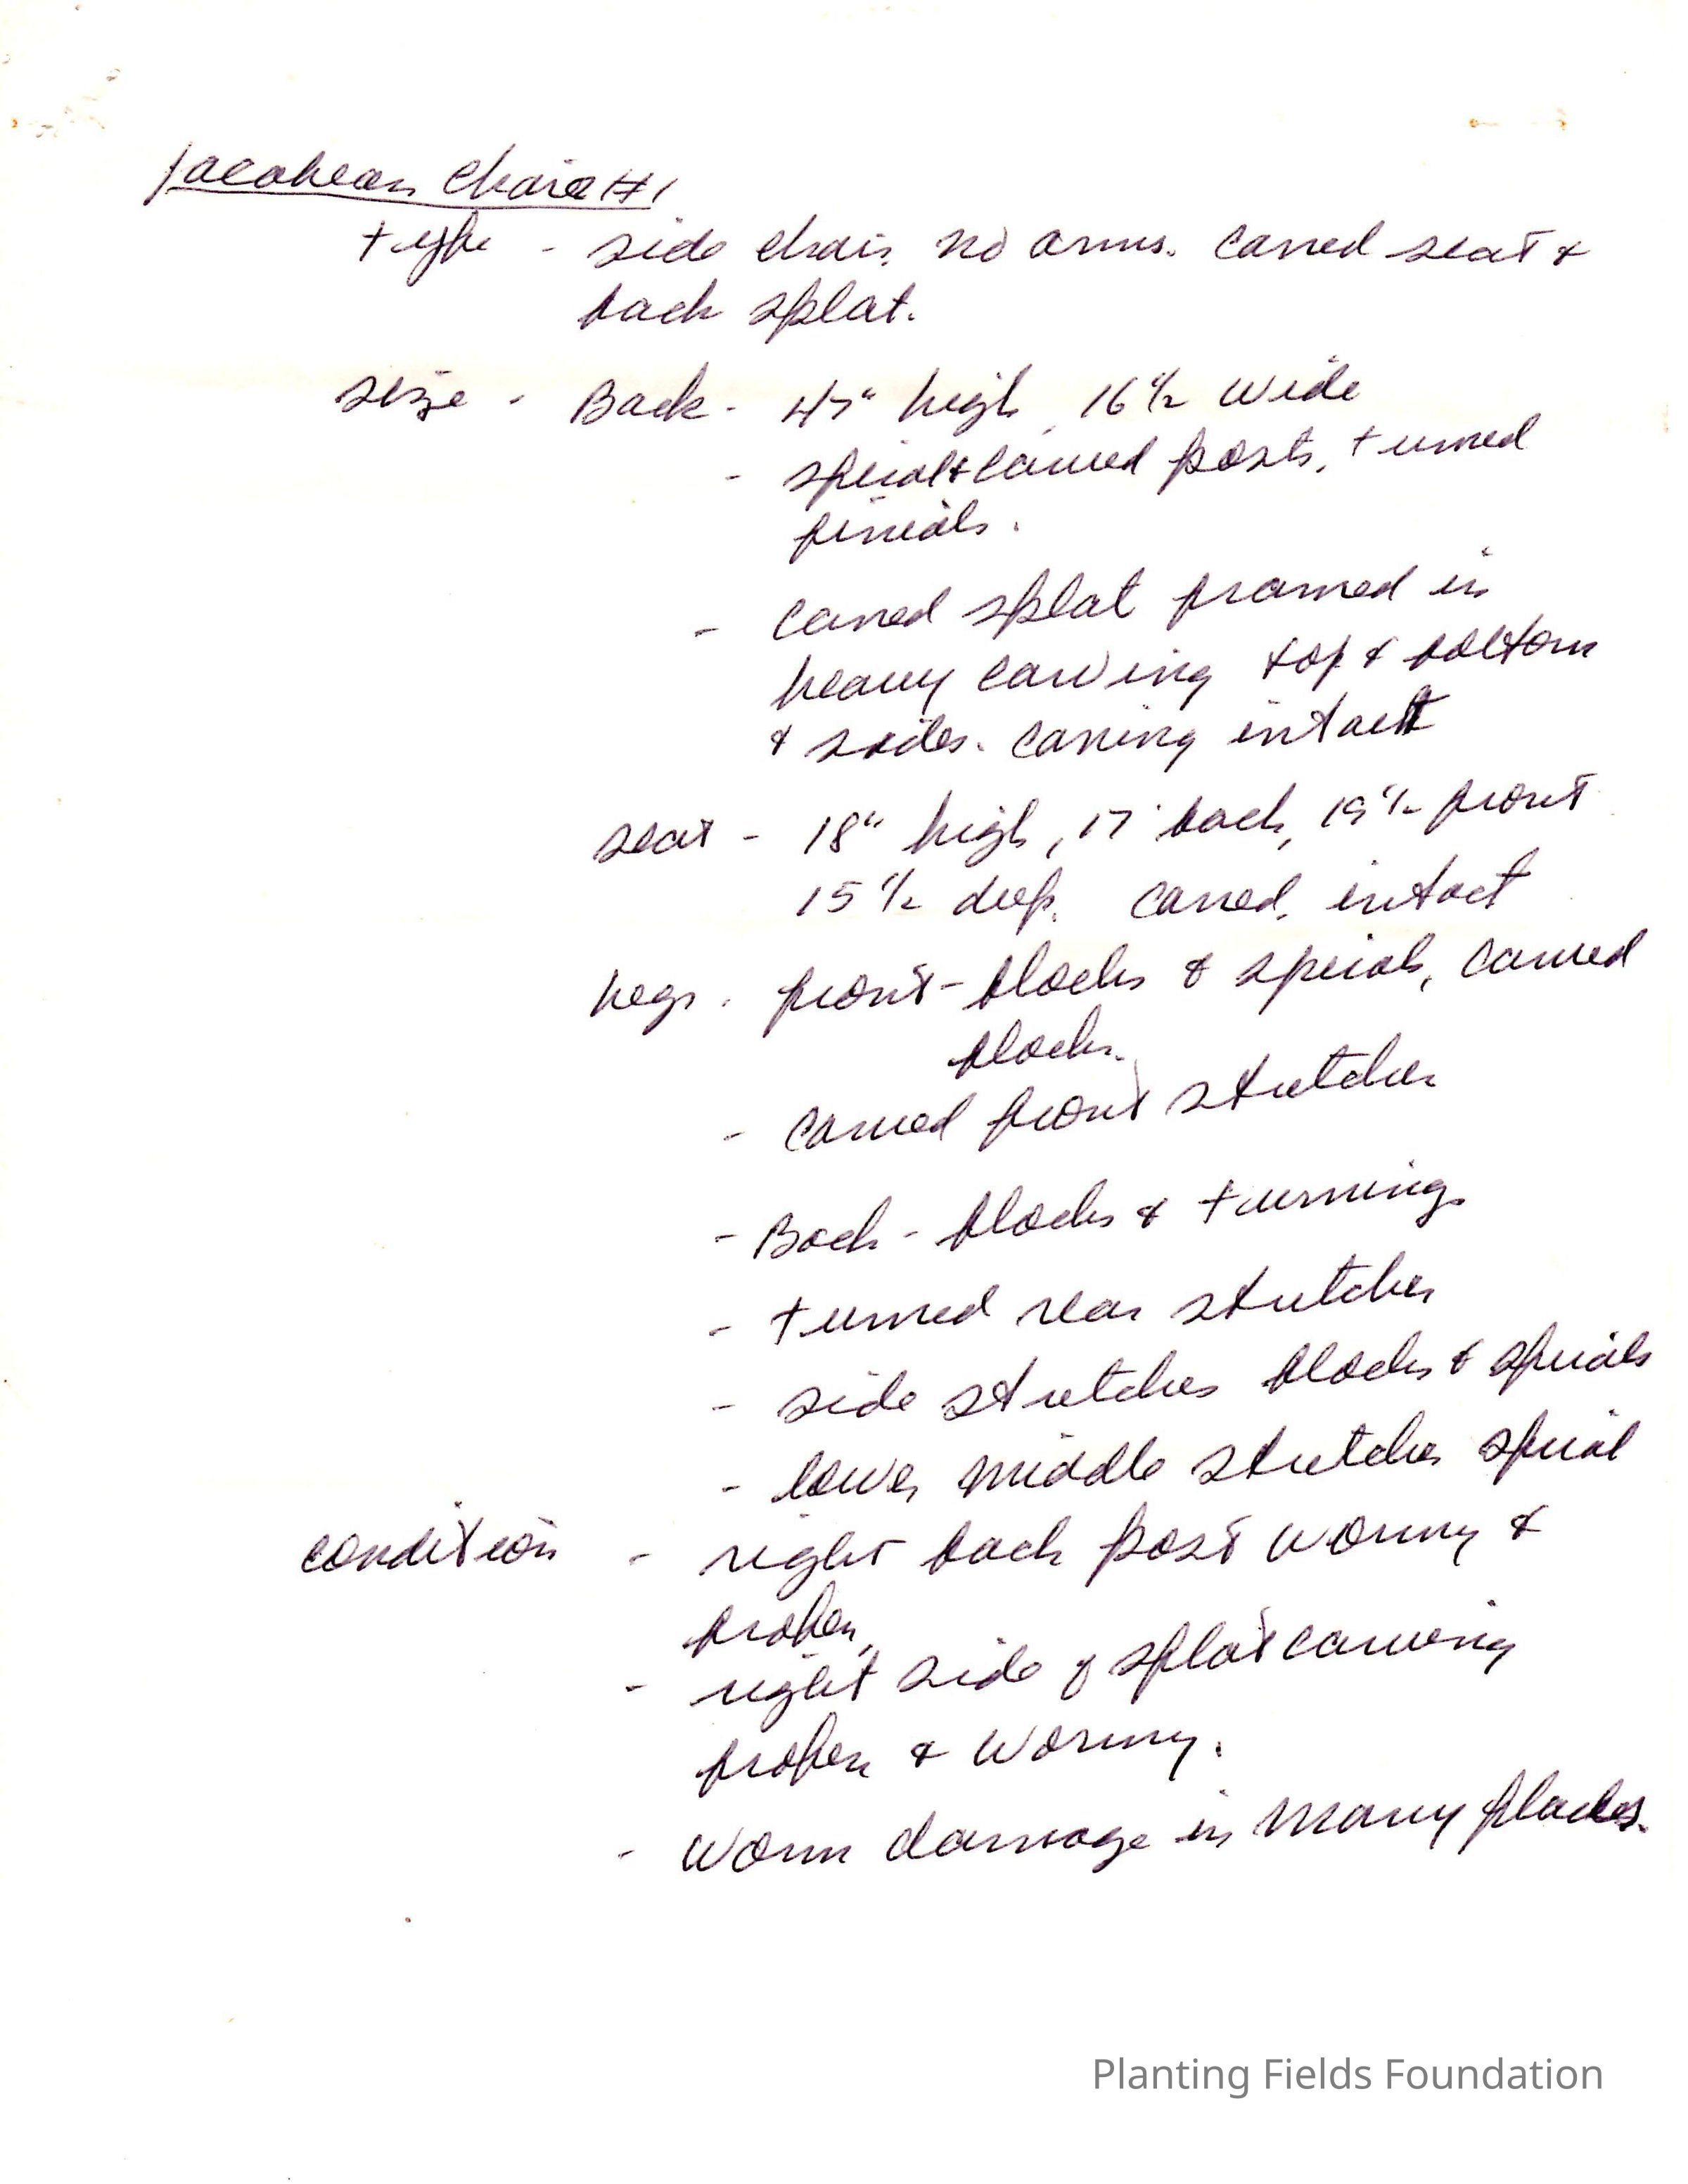 Jacobean Chair #1
type - side chair. no arms. caned seat &
back splat.
size - Back - 47" high, 16 1/2 wide
- spiral & carved posts, turned
finials.
- caned splat framed in
heavy carving top & bottom
& sides. caning intact
seat - 18" high, 17" back, 19 1/2 front
15 1/2 deep. caned, intact
legs - front - blocks & spirals, carved
blocks.
- carved front stretcher
- Back - blocks & turnings
- turned rear stretcher
- side stretches blocks & spirals
- lower middle stretcher spiral
condition - right back post wormy &
broken,
- right side of splat carving
broken & wormy.
- worm damage in many places.
Planting Fields Foundation